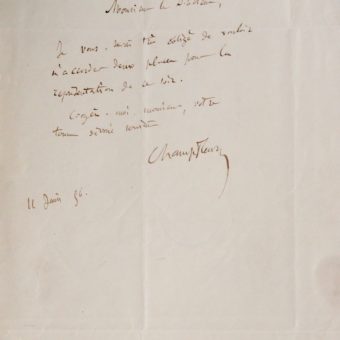 Monsieur le Docteur,
Je vous serai très obligé de vouloir
m'accorder deux places pour la
représentation de ce soir.
Croyez-moi, monsieur, votre
tout dévoué serviteur
Champfleury
11 Juin 56.